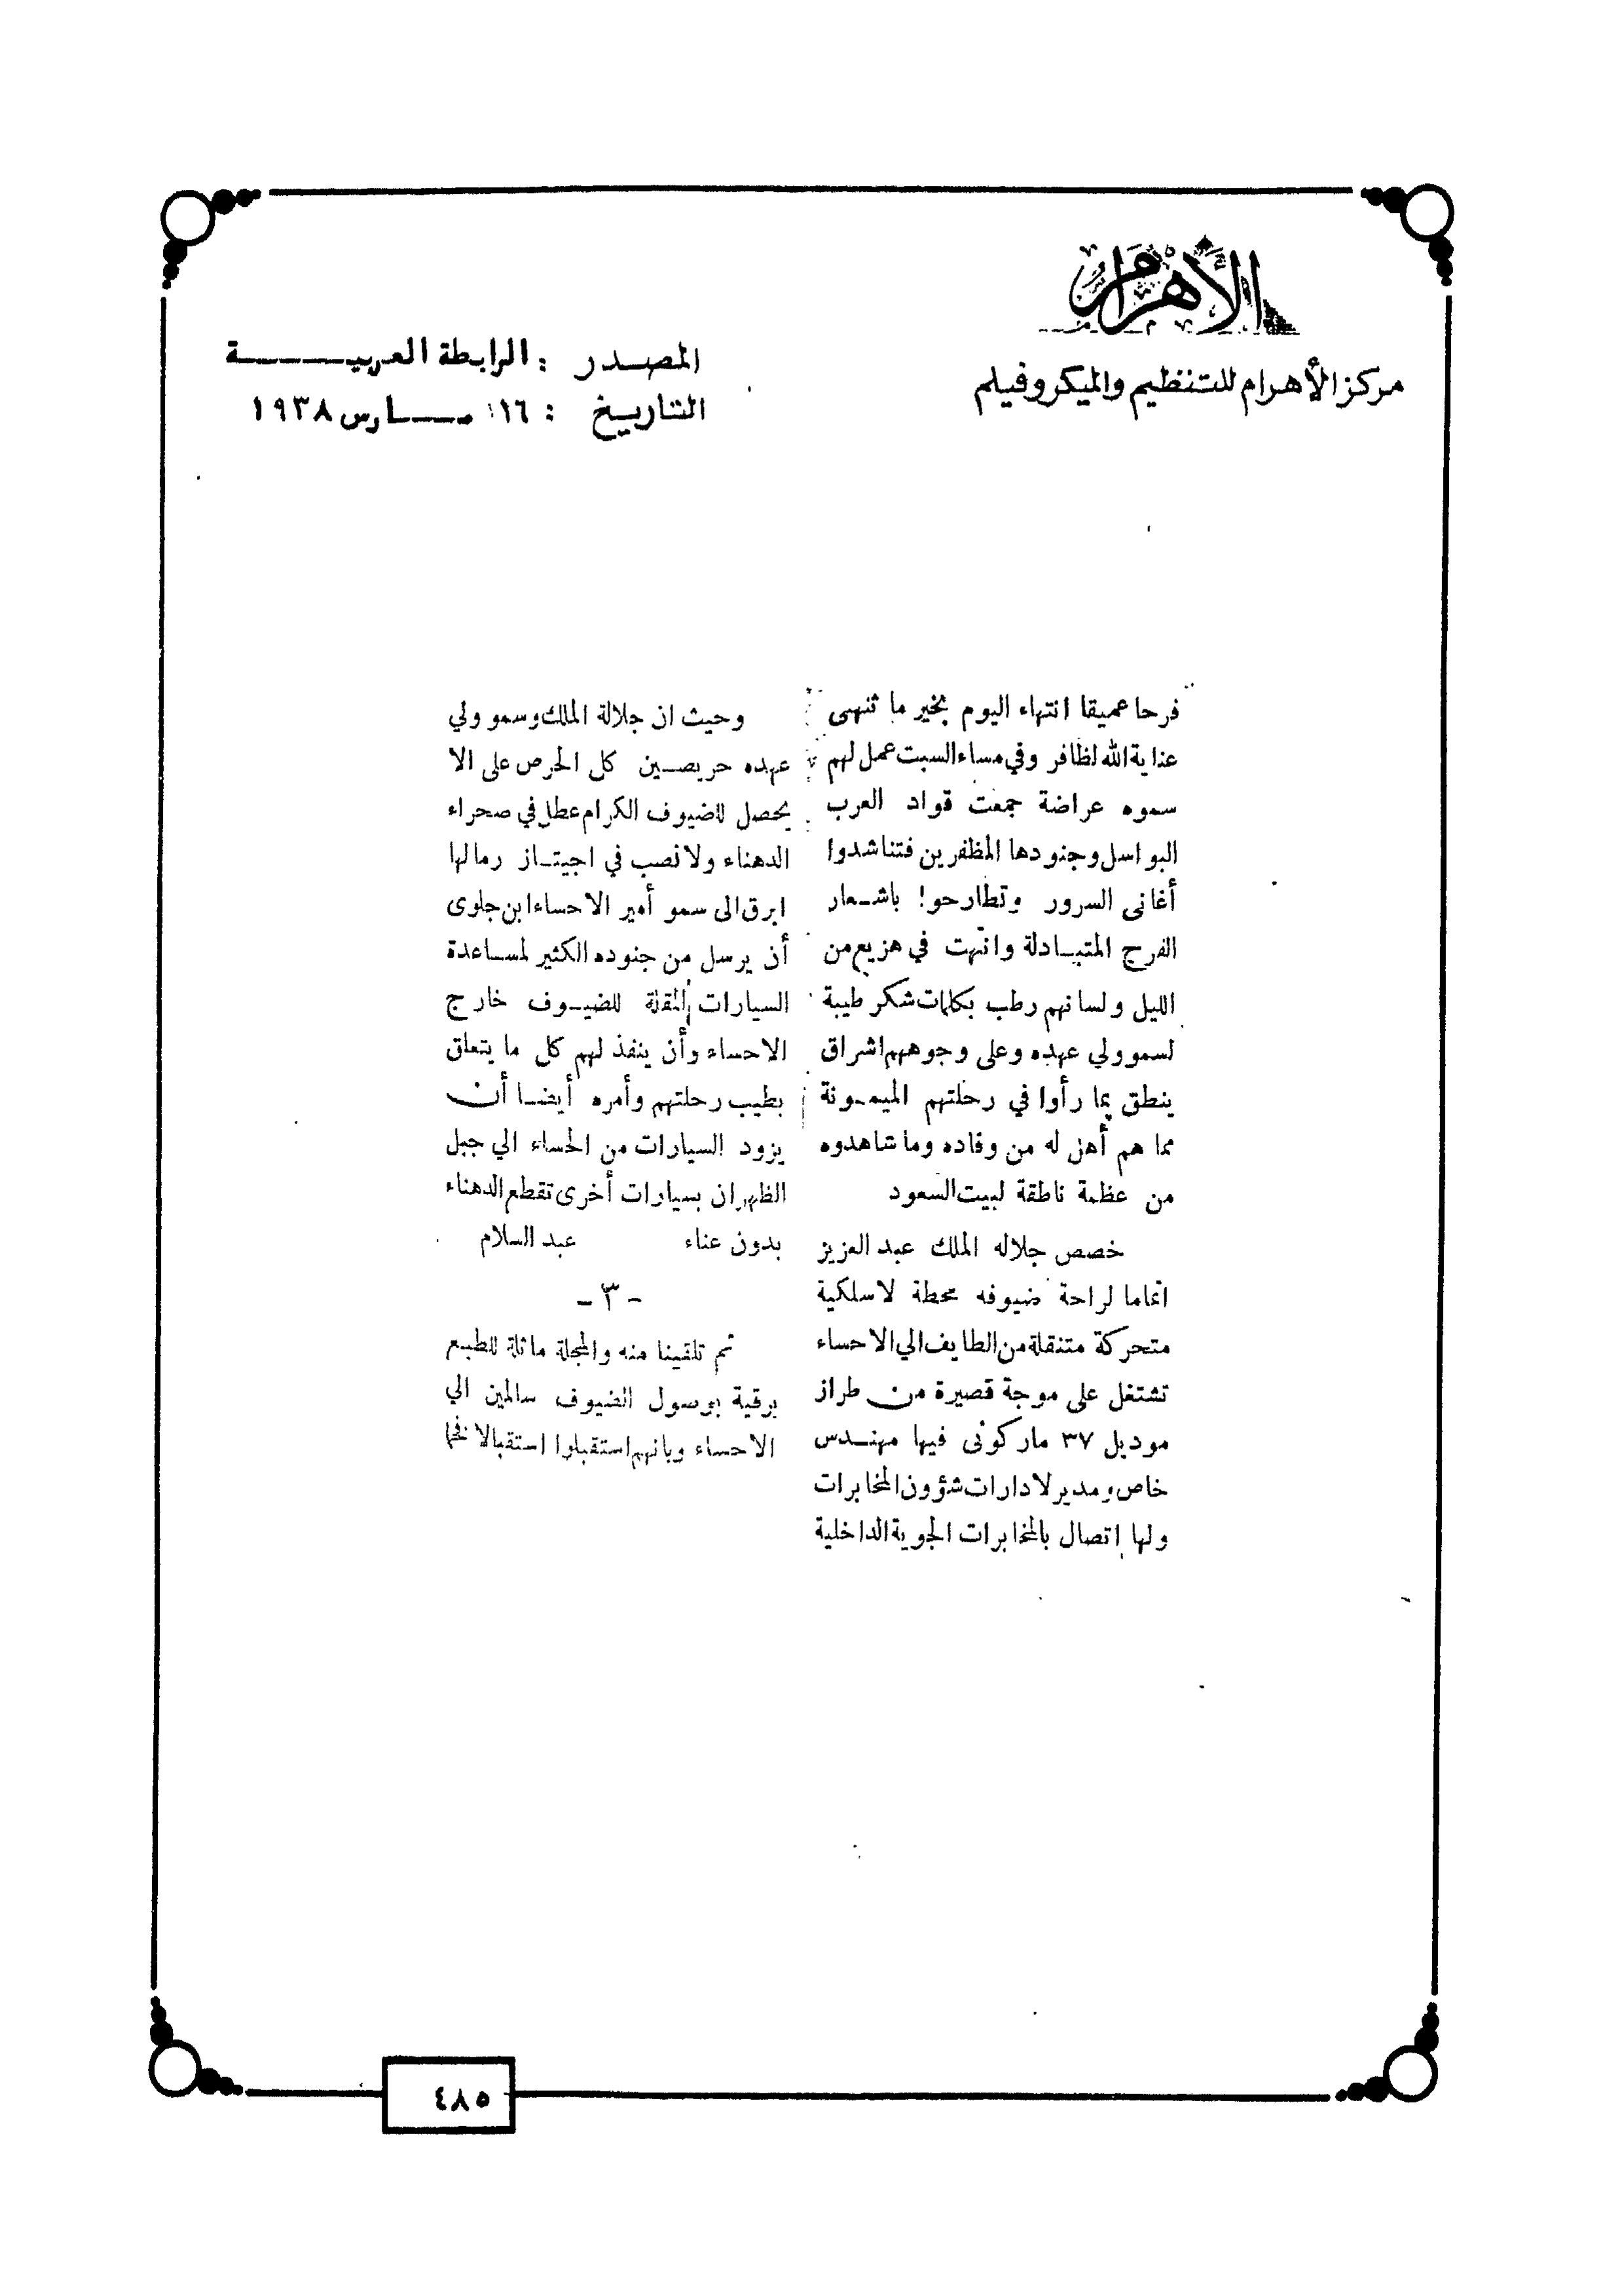 الأهرام
مركز الأهرام للتنظيم والميكروفيلم
المصدر : الرابطة العربية
التاريخ : ١٦ مارس ١٩٣٨
فرحا عميقا انتهاء اليوم بخير ما تنهى
عناية الله لظافر وفي مساء السبت عمل لهم
سموه عراضة جمعت قواد العرب
البواسل وجنودها المظفرين فتناشدوا
أغانى السرور وتطارحوا باشعار
الفرح المتبادلة وانتهت في هزيع من
الليل ولسانهم رطب بكلمات شكر طيبة
لسمو ولي عهده وعلى وجوههم اشراق
ينطق بما رأوا في رحلتهم الميمونة
مما هم أهل له من وفاده وما شاهدوه
من عظمة ناطقة لبيت السعود
خصص جلاله الملك عبد العزيز
اتماما لراحة ضيوفه محطة لاسلكية
متحركة متنقلة من الطايف الي الاحساء
تشتغل على موجة قصيرة من طراز
موديل ٣٧ ماركونى فيها مهندس
خاص ومدير لادارات شؤون المخابرات
ولها اتصال بالمخابرات الجوية الداخلية
وحيث ان جلالة الملك وسمو ولي
عهده حريصين كل الحرص على الا
يحصل للضيوف الكرام عطل في صحراء
الدهناء ولا نصب في اجيتاز رمالها
ابرق الى سمو أمير الاحساء ابن جلوى
أن يرسل من جنوده الكثير لمساعدة
السيارات المقلة للضيوف خارج
الاحساء وأن ينفذ لهم كل ما يتعلق
بطيب رحلتهم وأمره أيضا أن
يزود السيارات من الحساء الي جبل
الظهران بسيارات أخرى تقطع الدهناء
بدون عناء عبد السلام
- ٣ -
ثم تلقينا منه والمجلة ماثلة للطبع
برقية بوصول الضيوف سالمين الي
الاحساء وبانهم استقبلوا استقبالا فخما
٤٨٥